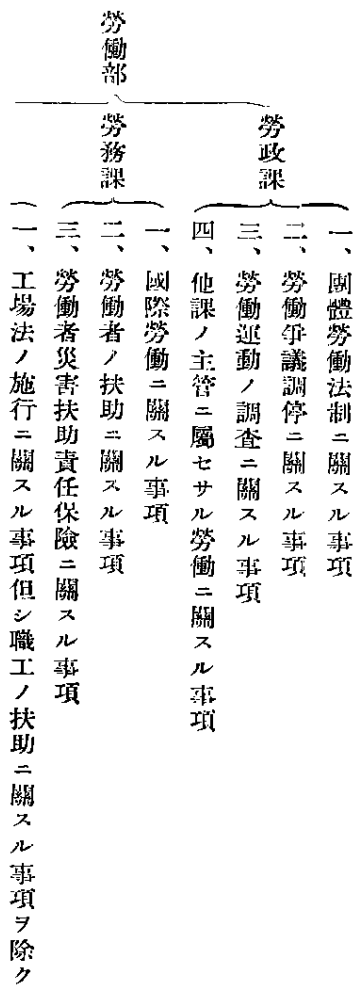 勞働部
勞政課
一、團體勞働法制ニ關スル事項
二、勞働爭議調停ニ關スル事項
三、勞働運動ノ調査ニ關スル事項
四、他課ノ主管ニ屬セサル勞働ニ關スル事項
勞務課
一、國際勞働ニ關スル事項
二、勞働者ノ扶助ニ關スル事項
三、勞働者災害扶助責任保險ニ關スル事項
一、工場法ノ施行ニ關スル事項但シ職工ノ扶助ニ關スル事項ヲ除ク